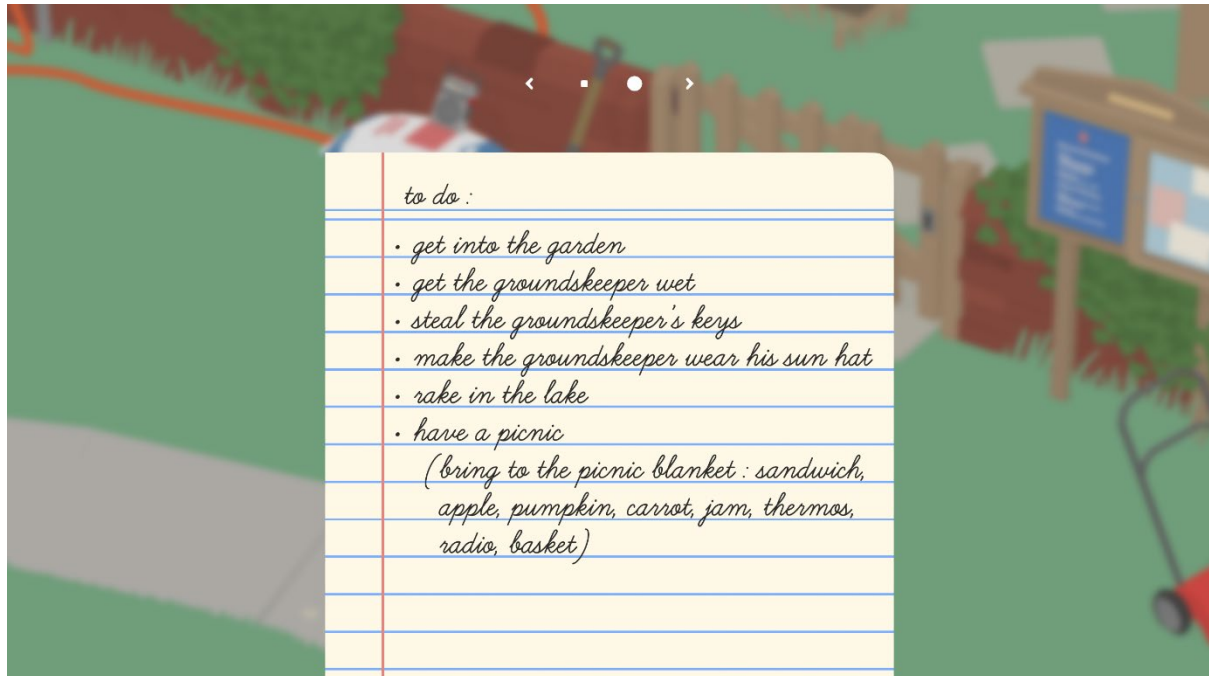 to do :
• get into the garden
• get the groundskeeper wet
• steal the groundskeeper's keys
• make the groundskeeper wear his sun hat
• rake in the lake
• have a picnic
(bring to the picnic blanket : sandwich,
apple, pumpkin, carrot, jam, thermos,
radio, basket)